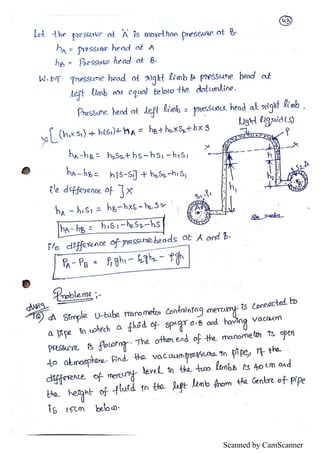 43
Let the pressure at 'A' is morethan pressure at B.
hA = pressure head at A
hB = Pressure head at B.
W.K.T pressure head at right limb & pressure head at
left limb are equal below the datumline.
Pressure head at left limb = pressure head at right limb.
Light liquid(s)
(h1×S1) + h(S1) + hA = hB + h2×S2 + h×S
hA-hB = h2S2 + hS - hS1 - h1S1
hA-hB = h[S-S1] + h2S2 - h1S1
i'e difference of
hA - h1S1 = hB - h×S - h2S2
hA-hB = h1S1 - h2S2 - hS
i'e difference of pressure heads at A and B.
PA - PB = ρ1gh1 - ρ2gh2 - ρgh
Problems :-
A Simple U-tube manometer Containing mercury is Connected to
a pipe in which a fluid of sp.gr 0.8 and having vacuum
pressure is flowing. The other end of the manometer is open
to atmosphere. Find the vacuum pressure in pipe, if the
difference of mercury level in the two limbs is 40cm and
the height of fluid in the left limb from the Centre of pipe
is 15cm below.
Scanned by CamScanner